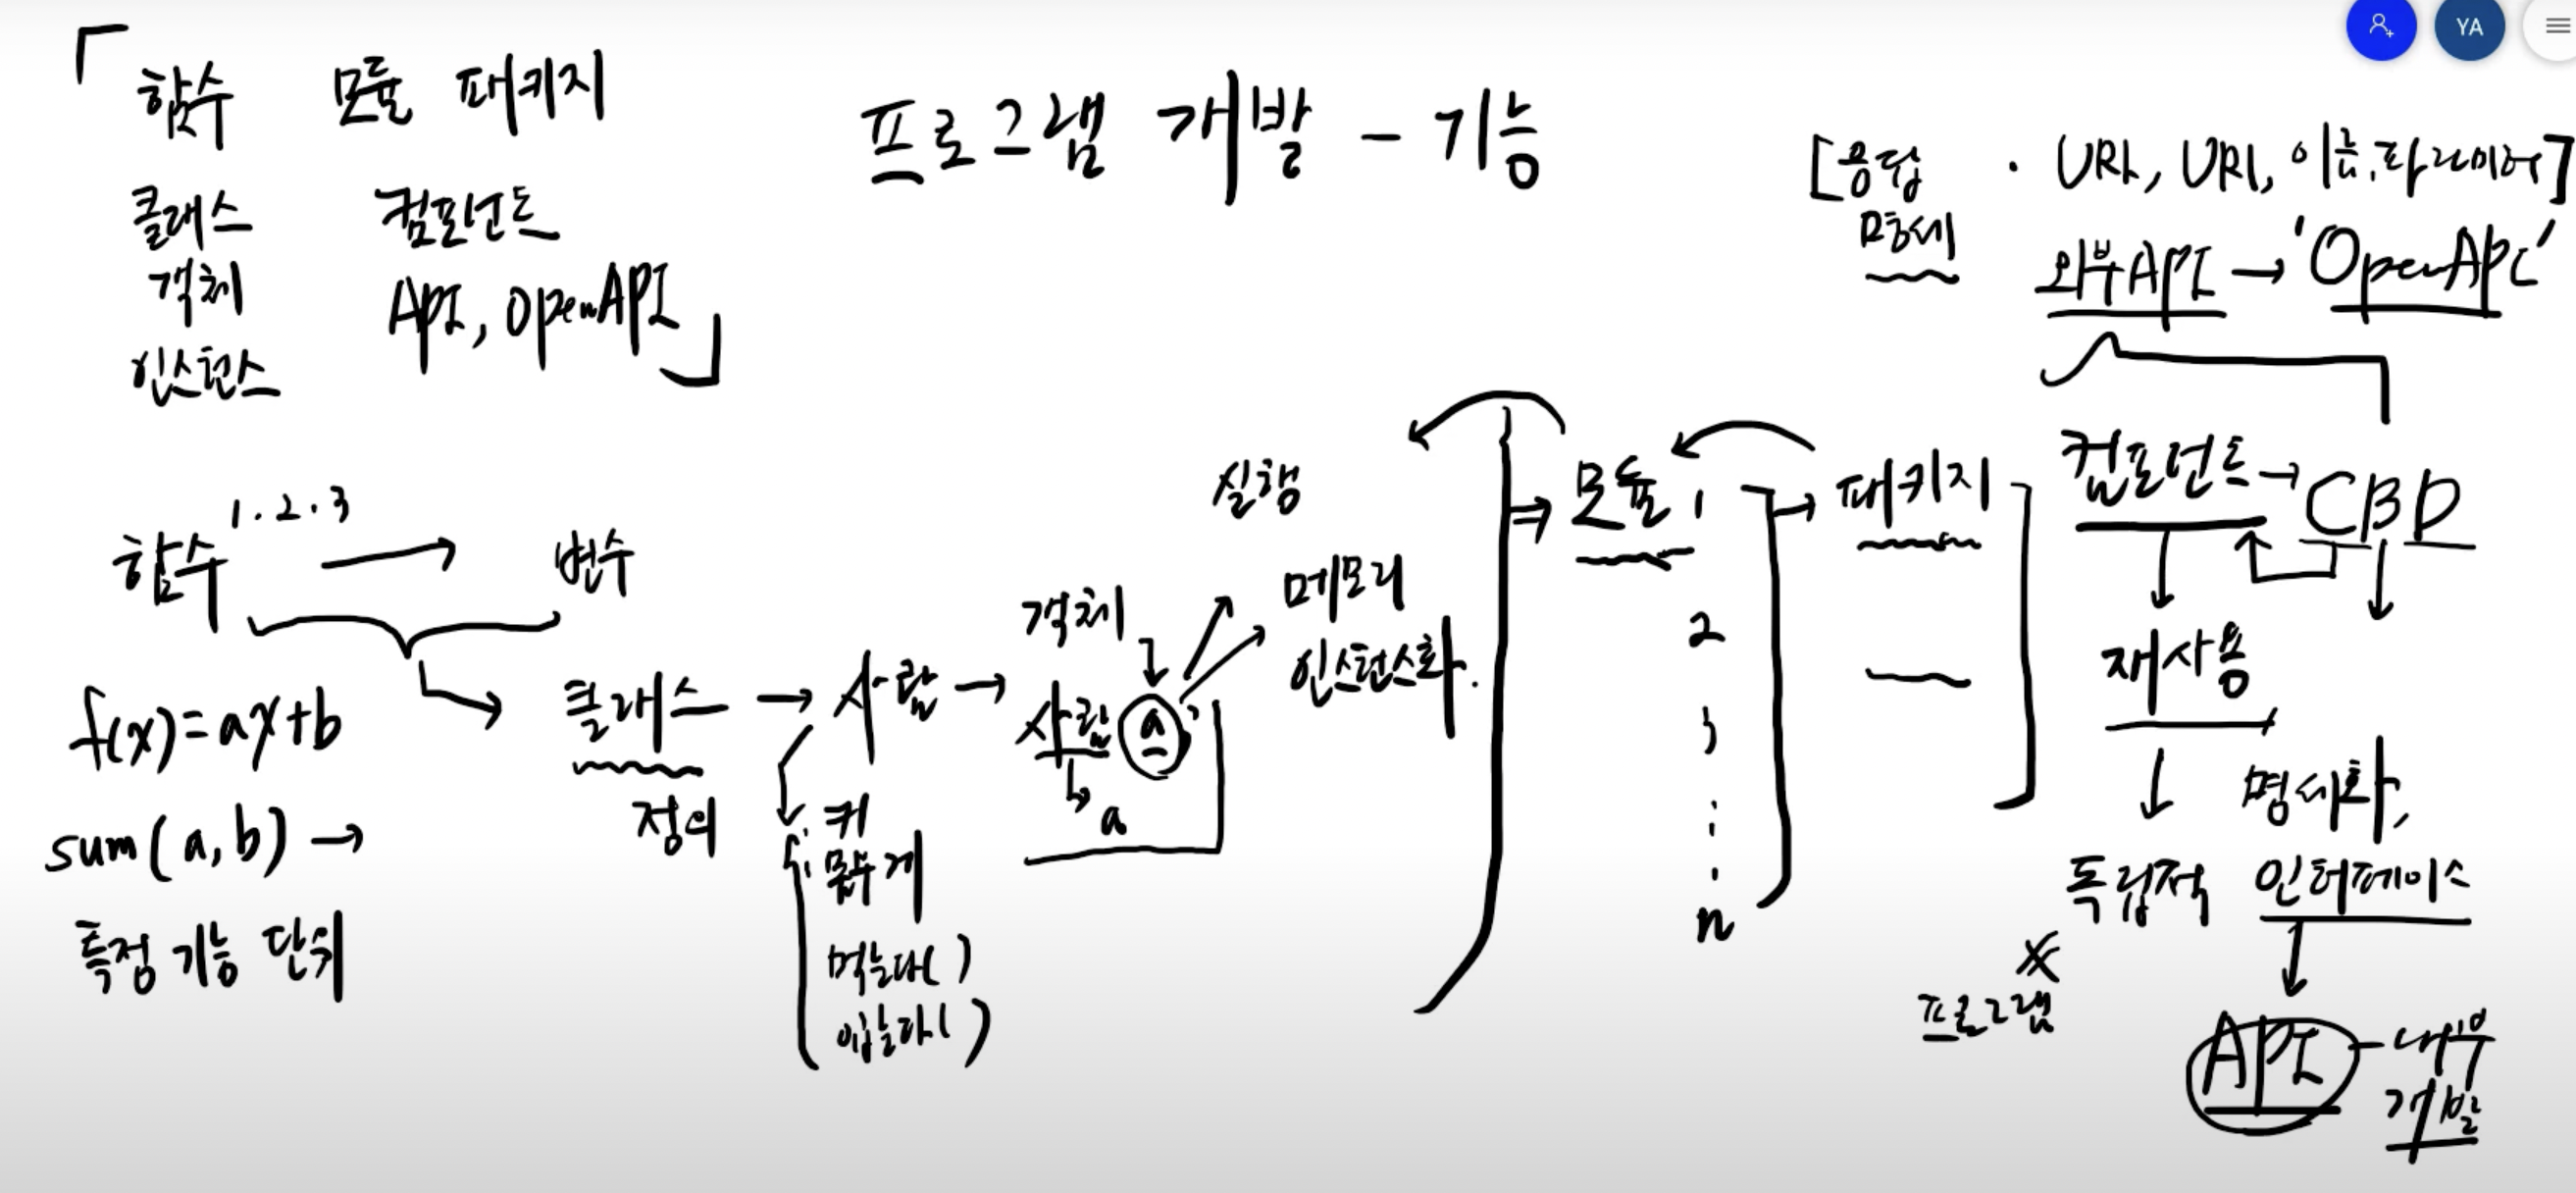 YA
함수 모듈 패키지
클래스 컴포넌트
객체 API, OpenAPI
인스턴스
프로그램 개발 - 기능
[응답 · URL, URI, 이름, 파라미터]
명세
외부API → 'OpenAPI'
함수 1.2.3 → 변수
f(x)=ax+b
sum(a,b) →
특정 기능 단위
클래스 → 사람 → 사람 a;
정의
키
몸무게
먹는다( )
입는다( )
객체
a
실행
메모리
인스턴스화.
⇒ 모듈 1 → 패키지
2
3
n
컴포넌트 → CBD
재사용
명세화,
독립적 인터페이스
프로그램
API - 내부
개발